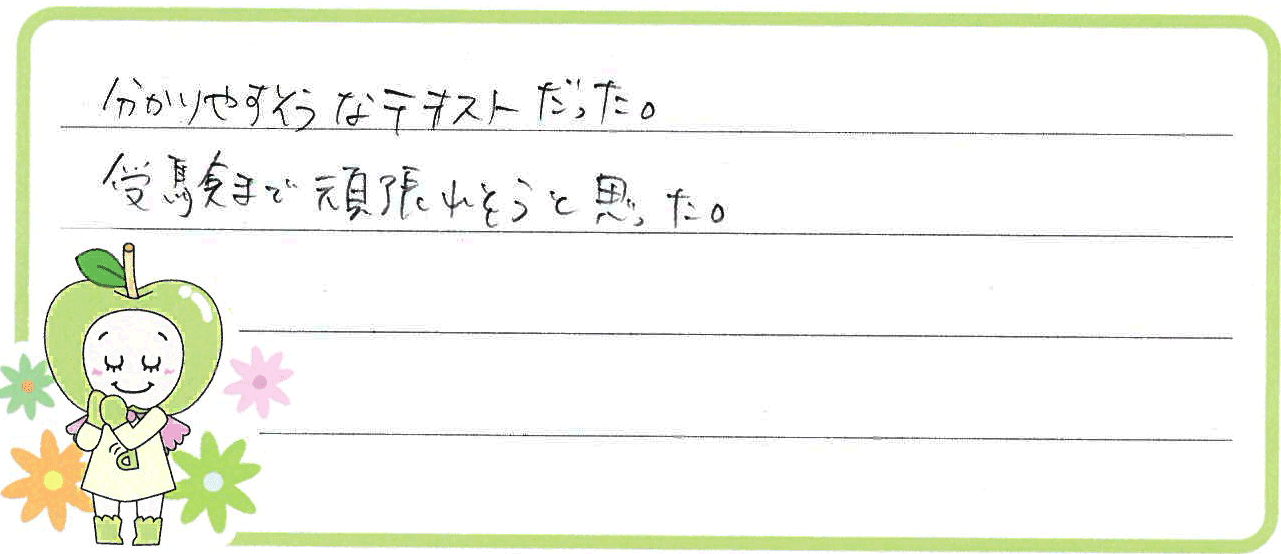 分かりやすそうなテキストだった。
受験まで頑張れそうと思った。